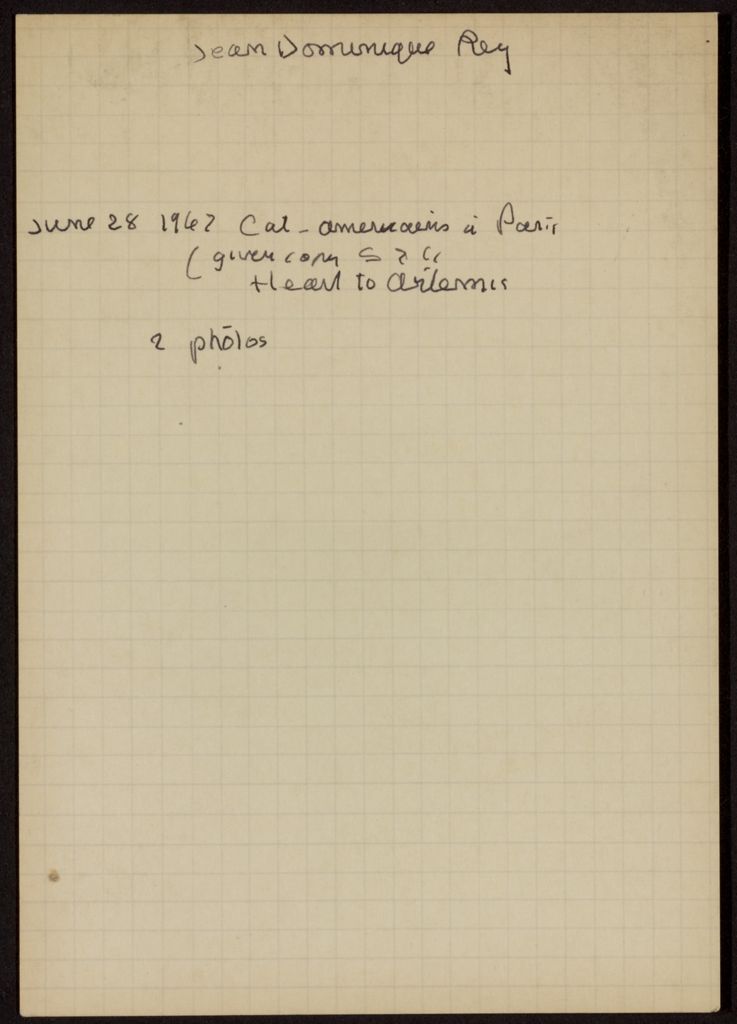 Jean Dominique Rey
June 28 1962 Cat - americains à Paris
( given copy S & Co
Heart to Artemis
2 photos